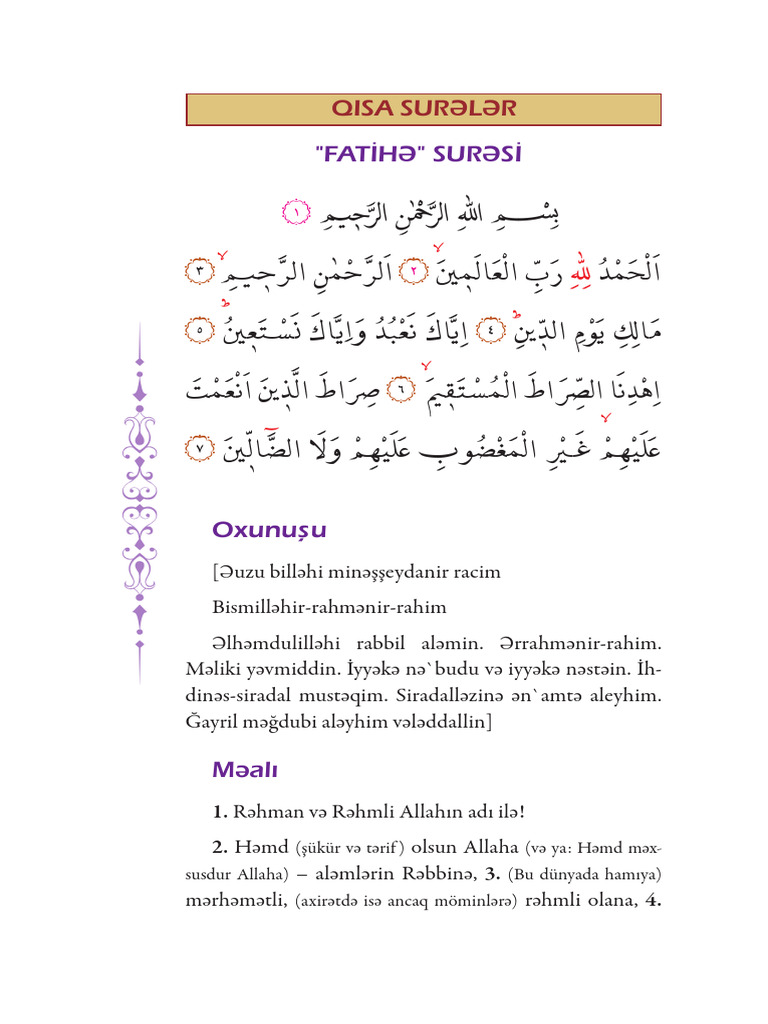 QISA SURƏLƏR
"FATİHƏ" SURƏSİ
بِسْــــمِ اللهِ الرَّحْمٰنِ الرَّح۪يمِ ﴿١﴾
اَلْحَمْدُ لِلهِ رَبِّ الْعَالَم۪ينَۙ ﴿٢﴾ اَلرَّحْمٰنِ الرَّح۪يمِۙ ﴿٣﴾
مَالِكِ يَوْمِ الدّ۪ينِۜ ﴿٤﴾ اِيَّاكَ نَعْبُدُ وَاِيَّاكَ نَسْتَع۪ينُۜ ﴿٥﴾
اِهْدِنَا الصِّرَاطَ الْمُسْتَق۪يمَۙ ﴿٦﴾ صِرَاطَ الَّذ۪ينَ اَنْعَمْتَ
عَلَيْهِمْۙ غَيْرِ الْمَغْضُوبِ عَلَيْهِمْ وَلَا الضَّٓالّ۪ينَ ﴿٧﴾
Oxunuşu
[Əuzu billəhi minəşşeydanir racim
Bismilləhir-rahmənir-rahim
Əlhəmdulilləhi rabbil aləmin. Ərrahmənir-rahim.
Məliki yəvmiddin. İyyəkə nə`budu və iyyəkə nəstəin. İh-
dinəs-siradal mustəqim. Siradalləzinə ən`amtə aleyhim.
Ğayril məğdubi aləyhim vələddallin]
Məalı
1. Rəhman və Rəhmli Allahın adı ilə!
2. Həmd (şükür və tərif) olsun Allaha (və ya: Həmd məx-
susdur Allaha) – aləmlərin Rəbbinə, 3. (Bu dünyada hamıya)
mərhəmətli, (axirətdə isə ancaq möminlərə) rəhmli olana, 4.